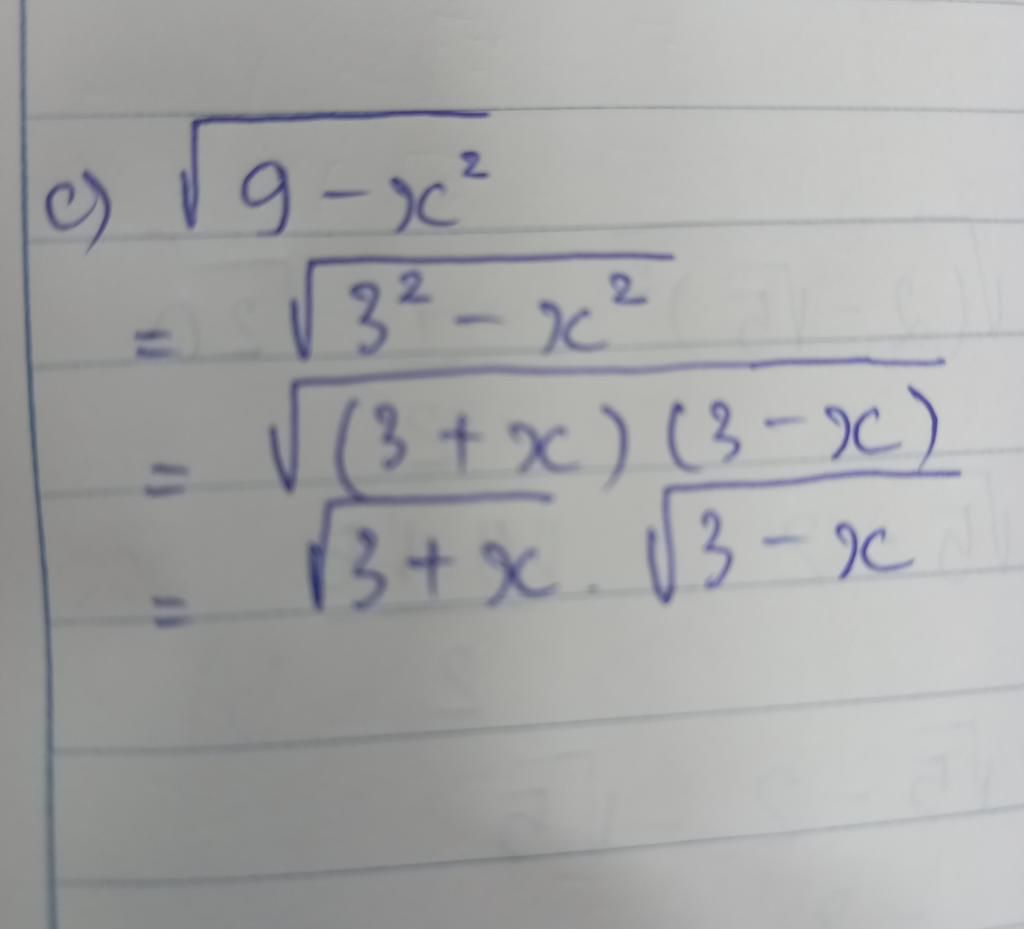 c) √(9 - x²)
= √(3² - x²)
= √((3 + x) (3 - x))
= √(3 + x) . √(3 - x)